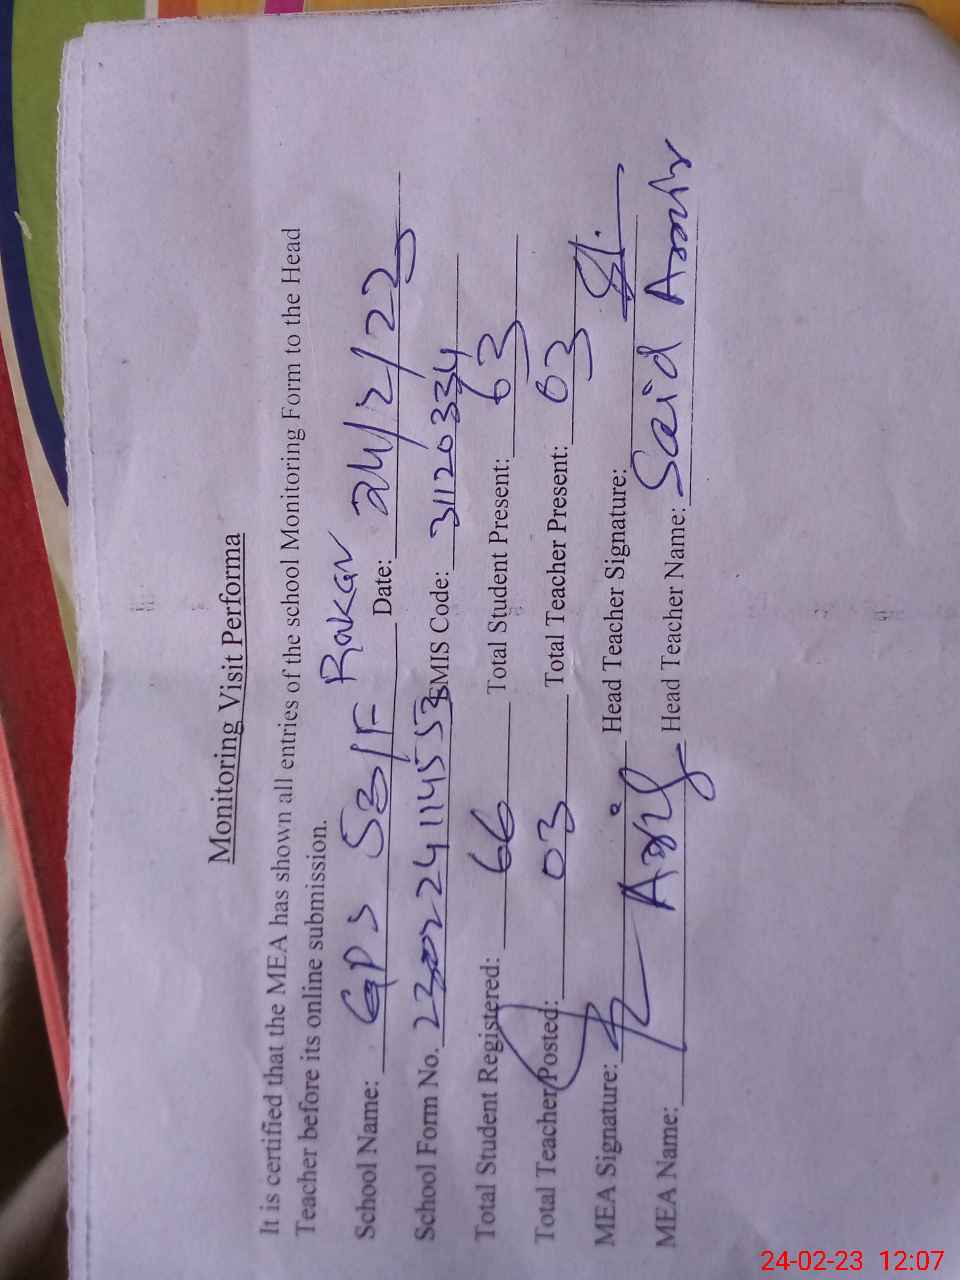 Monitoring Visit Performa
It is certified that the MEA has shown all entries of the school Monitoring Form to the Head
Teacher before its online submission.
School Name: GPS 53/F Date: 24/2/23
School Form No. EMIS Code: 31120334
Total Student Registered: 66 Total Student Present: 63
Total Teacher Posted: 03 Total Teacher Present: 03
MEA Signature: Head Teacher Signature:
MEA Name: Asif Head Teacher Name: Said Amir
24-02-23 12:07